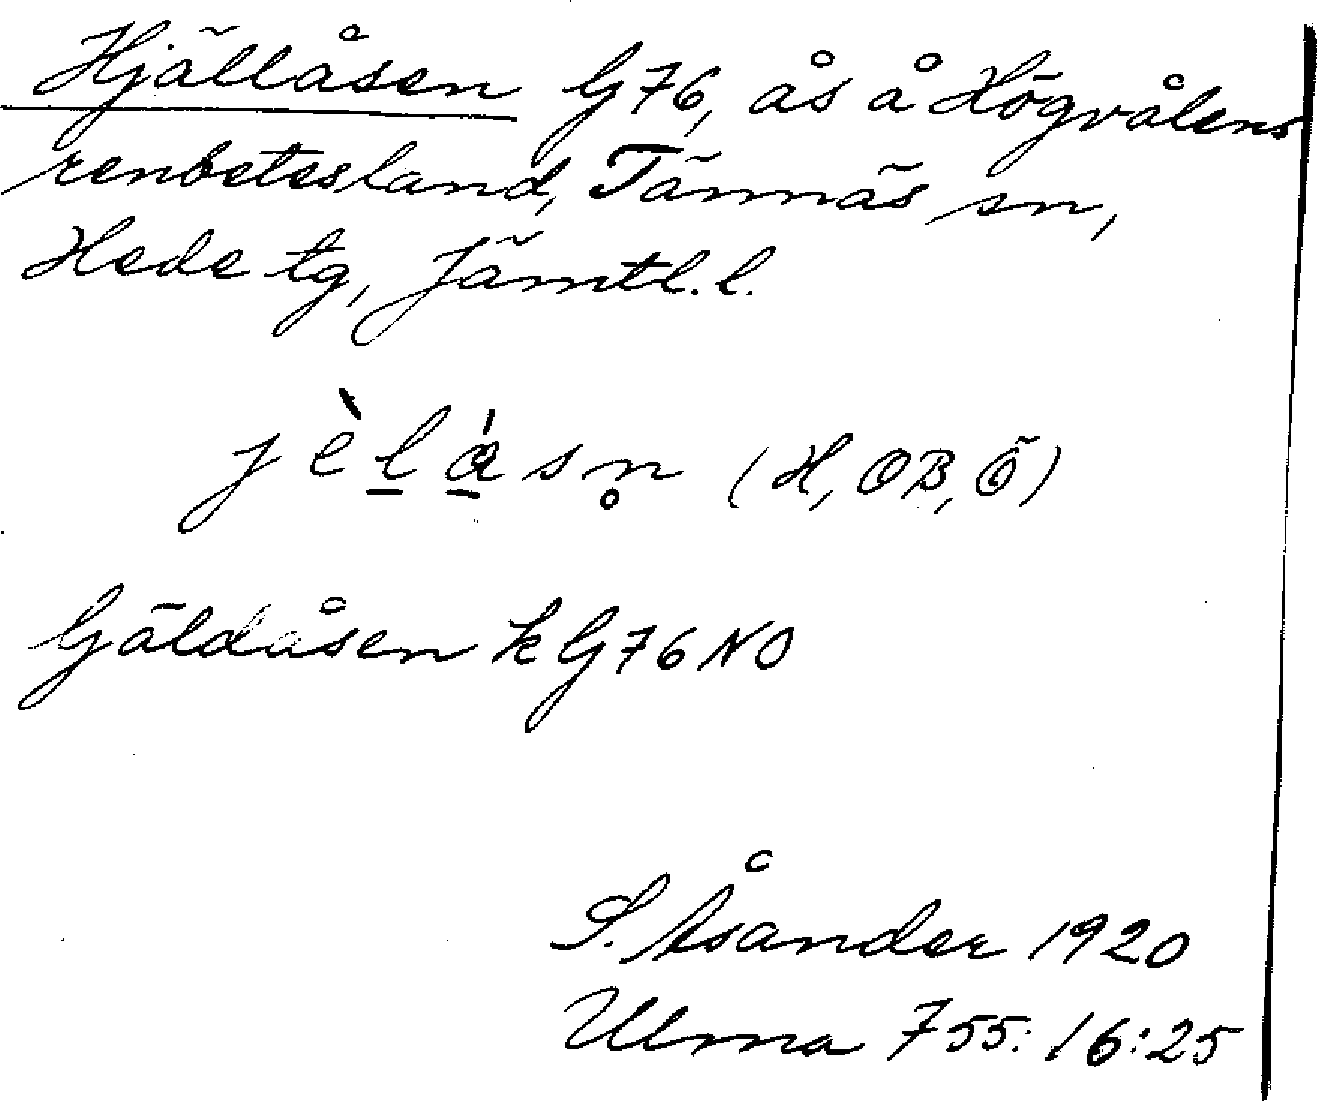 Hjällåsen G76, ås å Högvålens
renbetesland, Tännäs sn,
Hede tg, Jämtl. l.
jèl̲á̲sn̥ (H, OB, Ö)
Gäldåsen k G76 NO
S. Åsander 1920
Ulma 755:16:25